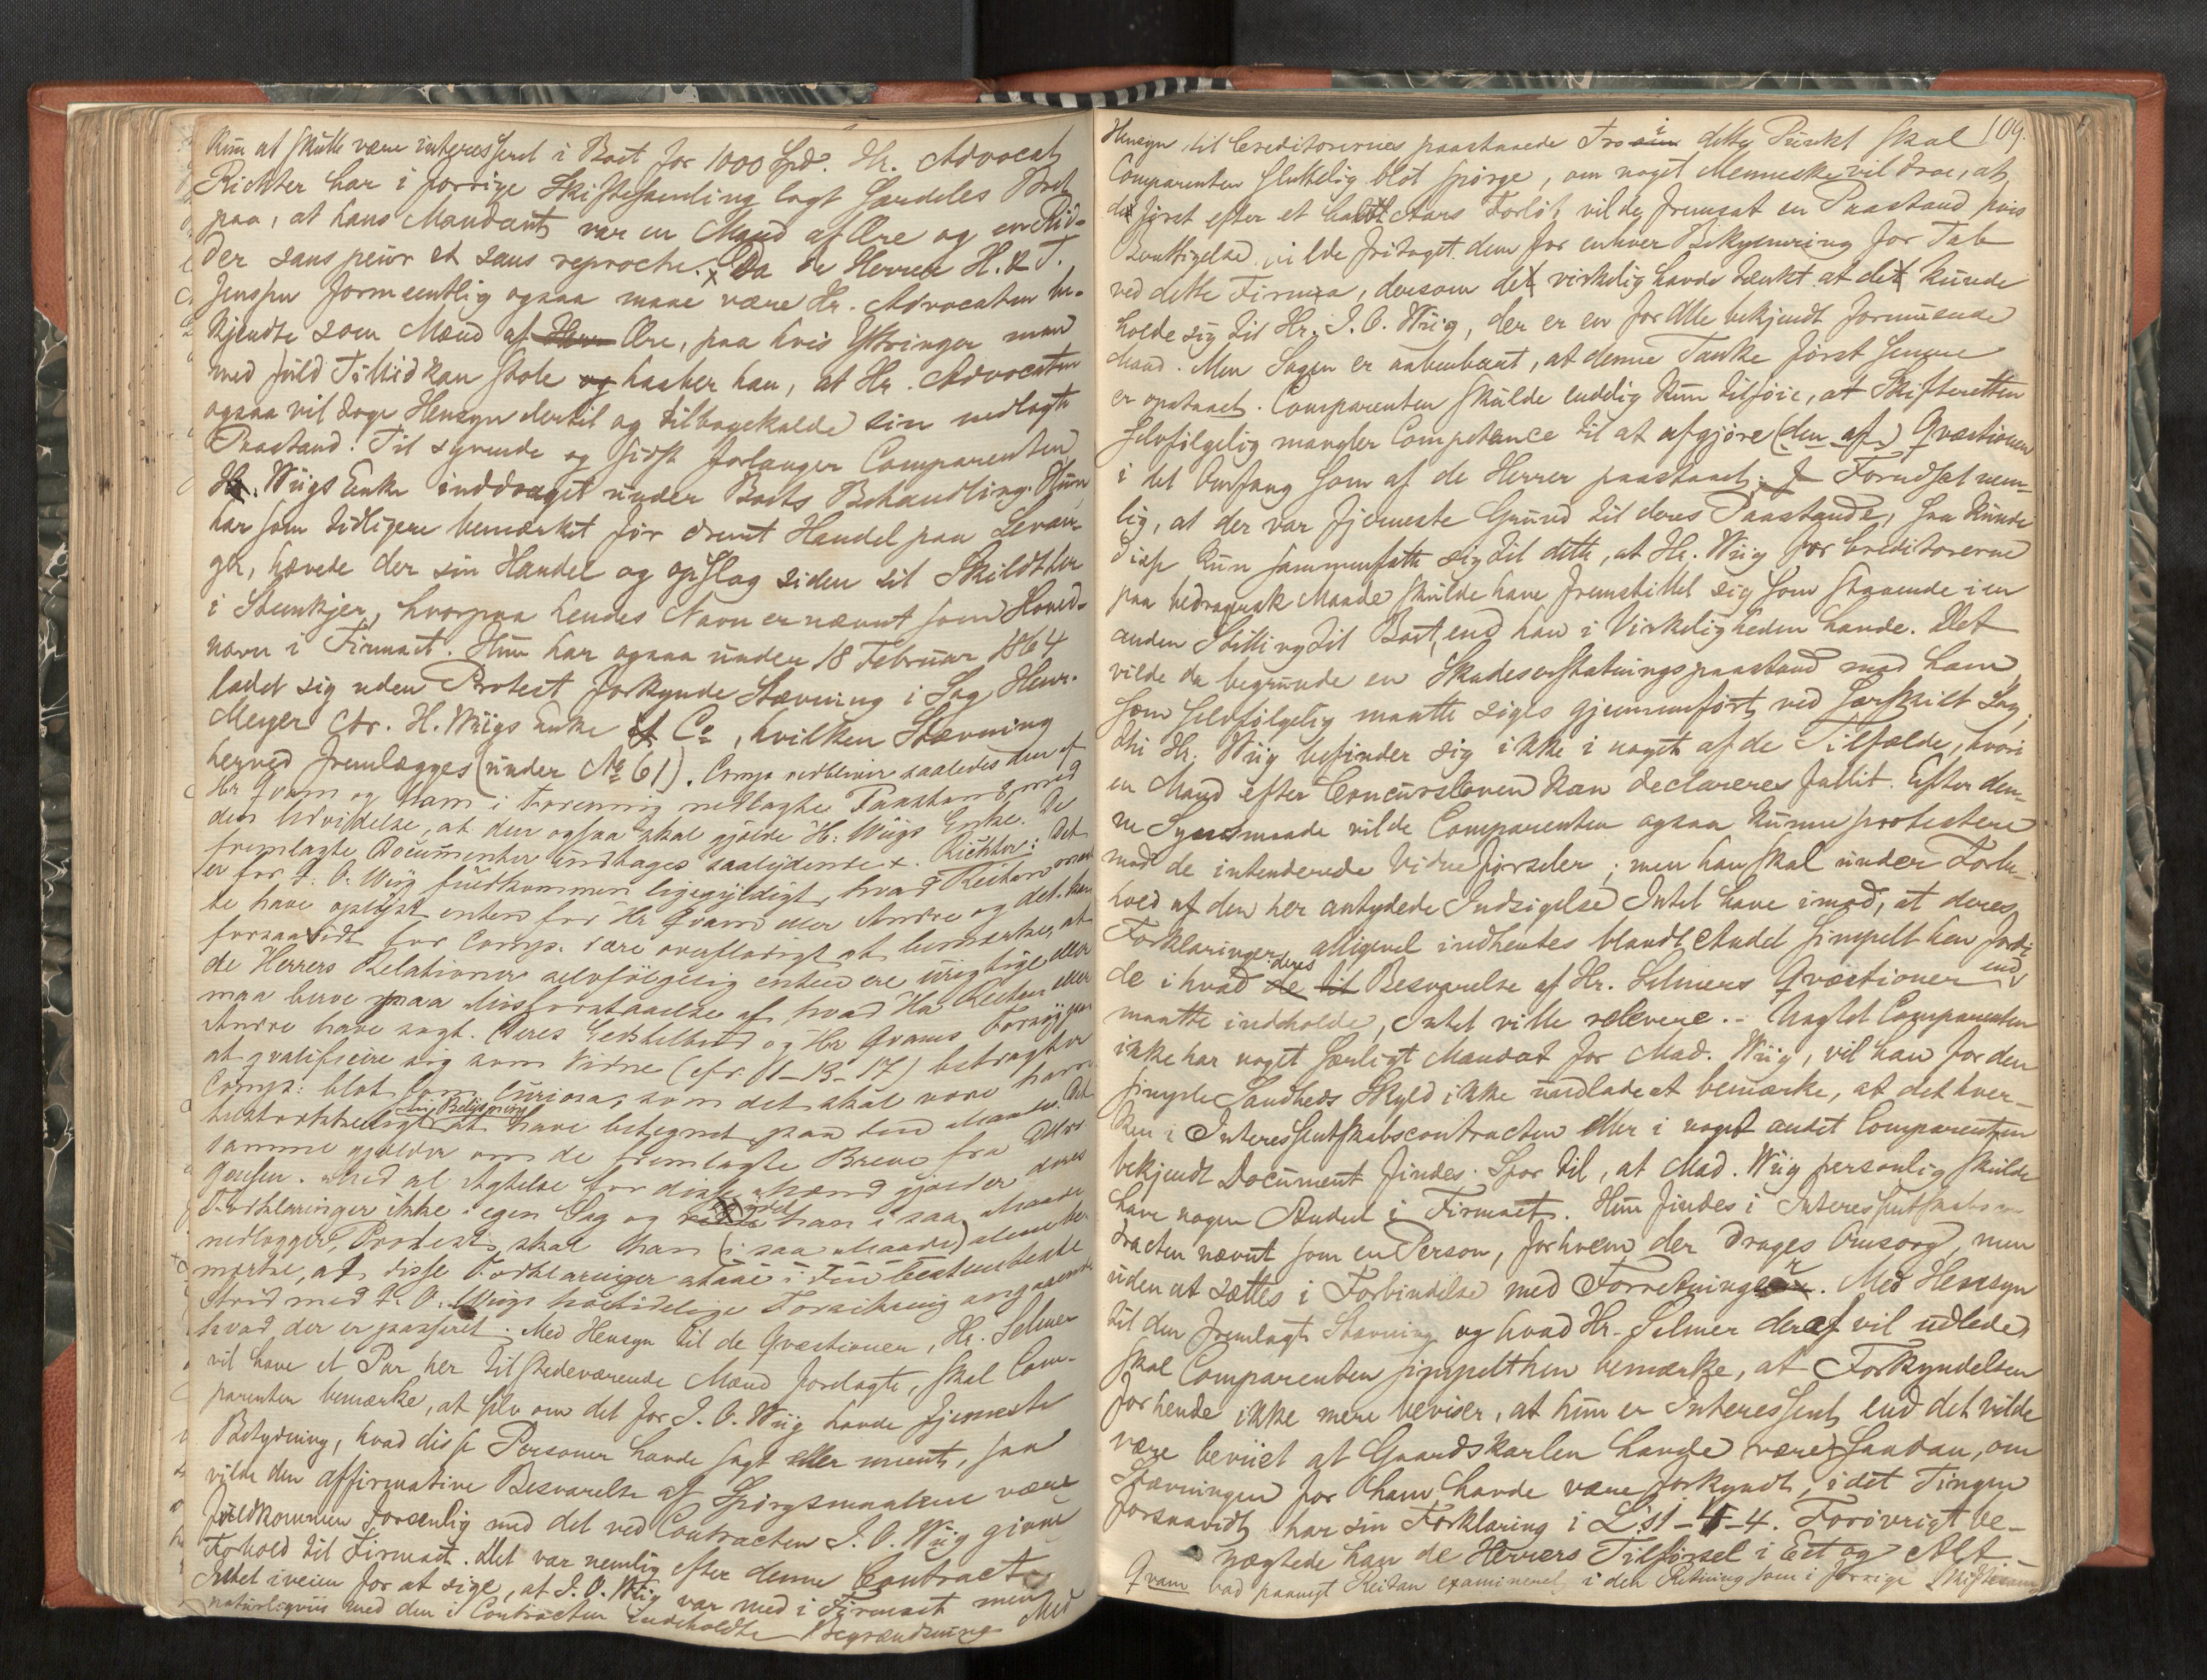 kun at skulle være interesseret i Boet for 1000 Spd. Hr. Advocat
Richter har i forrige Skiftesamling lagt særdeles Vægt
paa, at hans Mandant var en Mand af Ære og en Rid-
der sans peur et sans reproche. Da de Herrer H. & T.
Jenssen formeentlig ogsaa maae være Hr. Advocaten be-
kjendte som Mænd af Ære, paa hvis Yttringer man
med fuld Tillid kan stole og haaber han, at Hr. Advocaten
ogsaa vil tage Hensyn dertil og tilbagekalde sin nedlagte
Paastand. Til syvende og sidst forlanger Comparenten
H. Wiigs Enke inddraget under Boets Behandling. Hun
har som tidligere bemærket før drevet Handel paa Levan-
ger, hævede der sin Handel og opslog siden sit Skildt her
i Steenkjer, hvorpaa hendes Navn er nævnt som Hoved-
navn i Firmaet. Hun har ogsaa under 18 Februar 1864
ladet sig uden Protest forkynde Stævning i Sag Henr.
Meyer ctr. H. Wiigs Enke & Co, hvilken Stævning
herved fremlægges (under No 61). Comp. nedlever saaledes den af
Hr Qvam og ham i Forening nedlagte Paastand med
den Udvidelse, at den ogsaa skal gjælde H. Wiigs Enke. De
fremlagte Documenter indtages saalydende +. Richter: Det
er for J. O. Wiig fuldkommen ligegyldigt, hvad Reitan maat-
te have oplyst enten for Hr Qvam eller Andre og det kan
forsaavidt for Comp. være overflødigt at bemærke, at
de Herrers Relationer selvfølgelig enten ere urigtige eller
maa berve paa Misforstaaelse af hvad Hr Reitan eller
Andre have sagt. Deres Selskab og Hr Qvams Forsøg paa
at qvalificere sig som Vidne (cfr. 1-13-17) betragter
Comp: blot som Curiosa, som det skal være ham
at have betegnet paa den Maade. Det
samme gjælder om de fremlagte Breve fra DHrr
Jenssen. Med al Agtelse for disse Mænd gjælder deres
Forklaringer ikke i egen Sag og han i saa Maade
nedlægger Protest, skal han (i saa Maade) alene be-
mærke, at disse Forklaringer staae i den bestemteste
Strid med J. O. Wiigs høitidelige Forsikring angaaende
hvad der er passeret. Med Hensyn til de Qvæstioner, Hr. Selmer
vil have et Par her tilstedeværende Mænd forelagte, skal Com-
parenten bemærke, at selv om det for J. O. Wiig havde fjerneste
Betydning, hvad disse Personer havde sagt eller meent, saa
vilde den affirmative Besvarelse af Spørgsmaalene være
fuldkommen forenlig med det ved Contracten J. O. Wiig givne
Forhold til Firmaet. Det var nemlig efter denne Contract
Intet iveien for at sige, at J. O. Wiig var med i Firmaet men
naturligviis med den i Contracten indeholdte Begrændsning. Med
109.
Hensyn til Creditorernes paastaaede Tro i dette Punkt skal
Comparenten sluttelig blot spørge, om noget Menneske vil troe, at
de først efter et halvt Aars Forløb vilde fremsat en Paastand, hvis
Berettigelse vilde fritaget dem for enhver Bekymring for Tab
ved dette Firma, dersom de virkelig havde tænkt at de kunde
holde sig til Hr. J. O. Wiig, der er en for Alle bekjendt formuende
Mand. Men Sagen er aabenbart, at denne Tanke først senere
er opstaaet. Comparenten skulde endelig kun tilføie, at Skifteretten
selvfølgelig mangler Competance til at afgjøre (den af) Qvæstionen
i det Omfang som af de Herrer paastaaet. Forudsat nem-
lig, at der var fjerneste Grund til deres Paastande, saa kunde
disse kun sammenfatte sig til dette, at Hr. Wiig for Creditorerne
paa bedragersk Maade skulde have fremstillet sig som staaende i en
anden Stilling til Boet, end han i Virkeligheden havde. Det
vilde da begrunde en Skadeserstatningspaastand mod ham,
som selvfølgelig maatte siges gjennemført ved særskilt Sag,
thi Hr. Wiig befinder sig ikke i noget af de Tilfælde, hvori
en Mand efter Concursloven kan declareres fallit. Efter den-
ne Synsmaade vilde Comparenten ogsaa kunne protestere
mod de intenderede Vidneførseler; men han skal under Forbe-
hold af den her antydede Indsigelse Intet have imod, at deres
Forklaringer alligevel indhentes blandt Andet simpelthen fordi
de i hvad deres Besvarelse af Hr. Selmers Qvæstioner end
maatte indholde, Intet ville relevere. - Uagtet Comparenten
ikke har noget særligt Mandat for Mad. Wiig, vil han for den
simple Sandheds Skyld ikke undlade at bemærke, at det hver-
ken i Interessentskabscontracten eller i noget andet Comparenten
bekjendt Document findes Spor til, at Mad. Wiig personlig skulde
have nogen Andeel i Firmaet. Hun findes i Interessentskabscon-
tracten nævnt som en Person, for hvem der drages Omsorg, men
uden at sættes i Forbindelse med Forretninger. Med Hensyn
til den fremlagte Stævning og hvad Hr. Selmer deraf vil udlede
skal Comparenten simpelthen bemærke, at Forkyndelsen
for hende ikke mere beviser, at hun er Interessent, end det vilde
være beviist at Gaardskarlen havde været saadan, om
Stævningen for ham havde være forkyndt, idet Tingen
forsaavidt har sin Forklaring i L's 1-4-4. Forøvrigt be-
nægtede han de Herrers Tilførsel i Eet og Alt
Qvam bad paanyt Reitan examineret i den Retning som i forrige Skiftesam